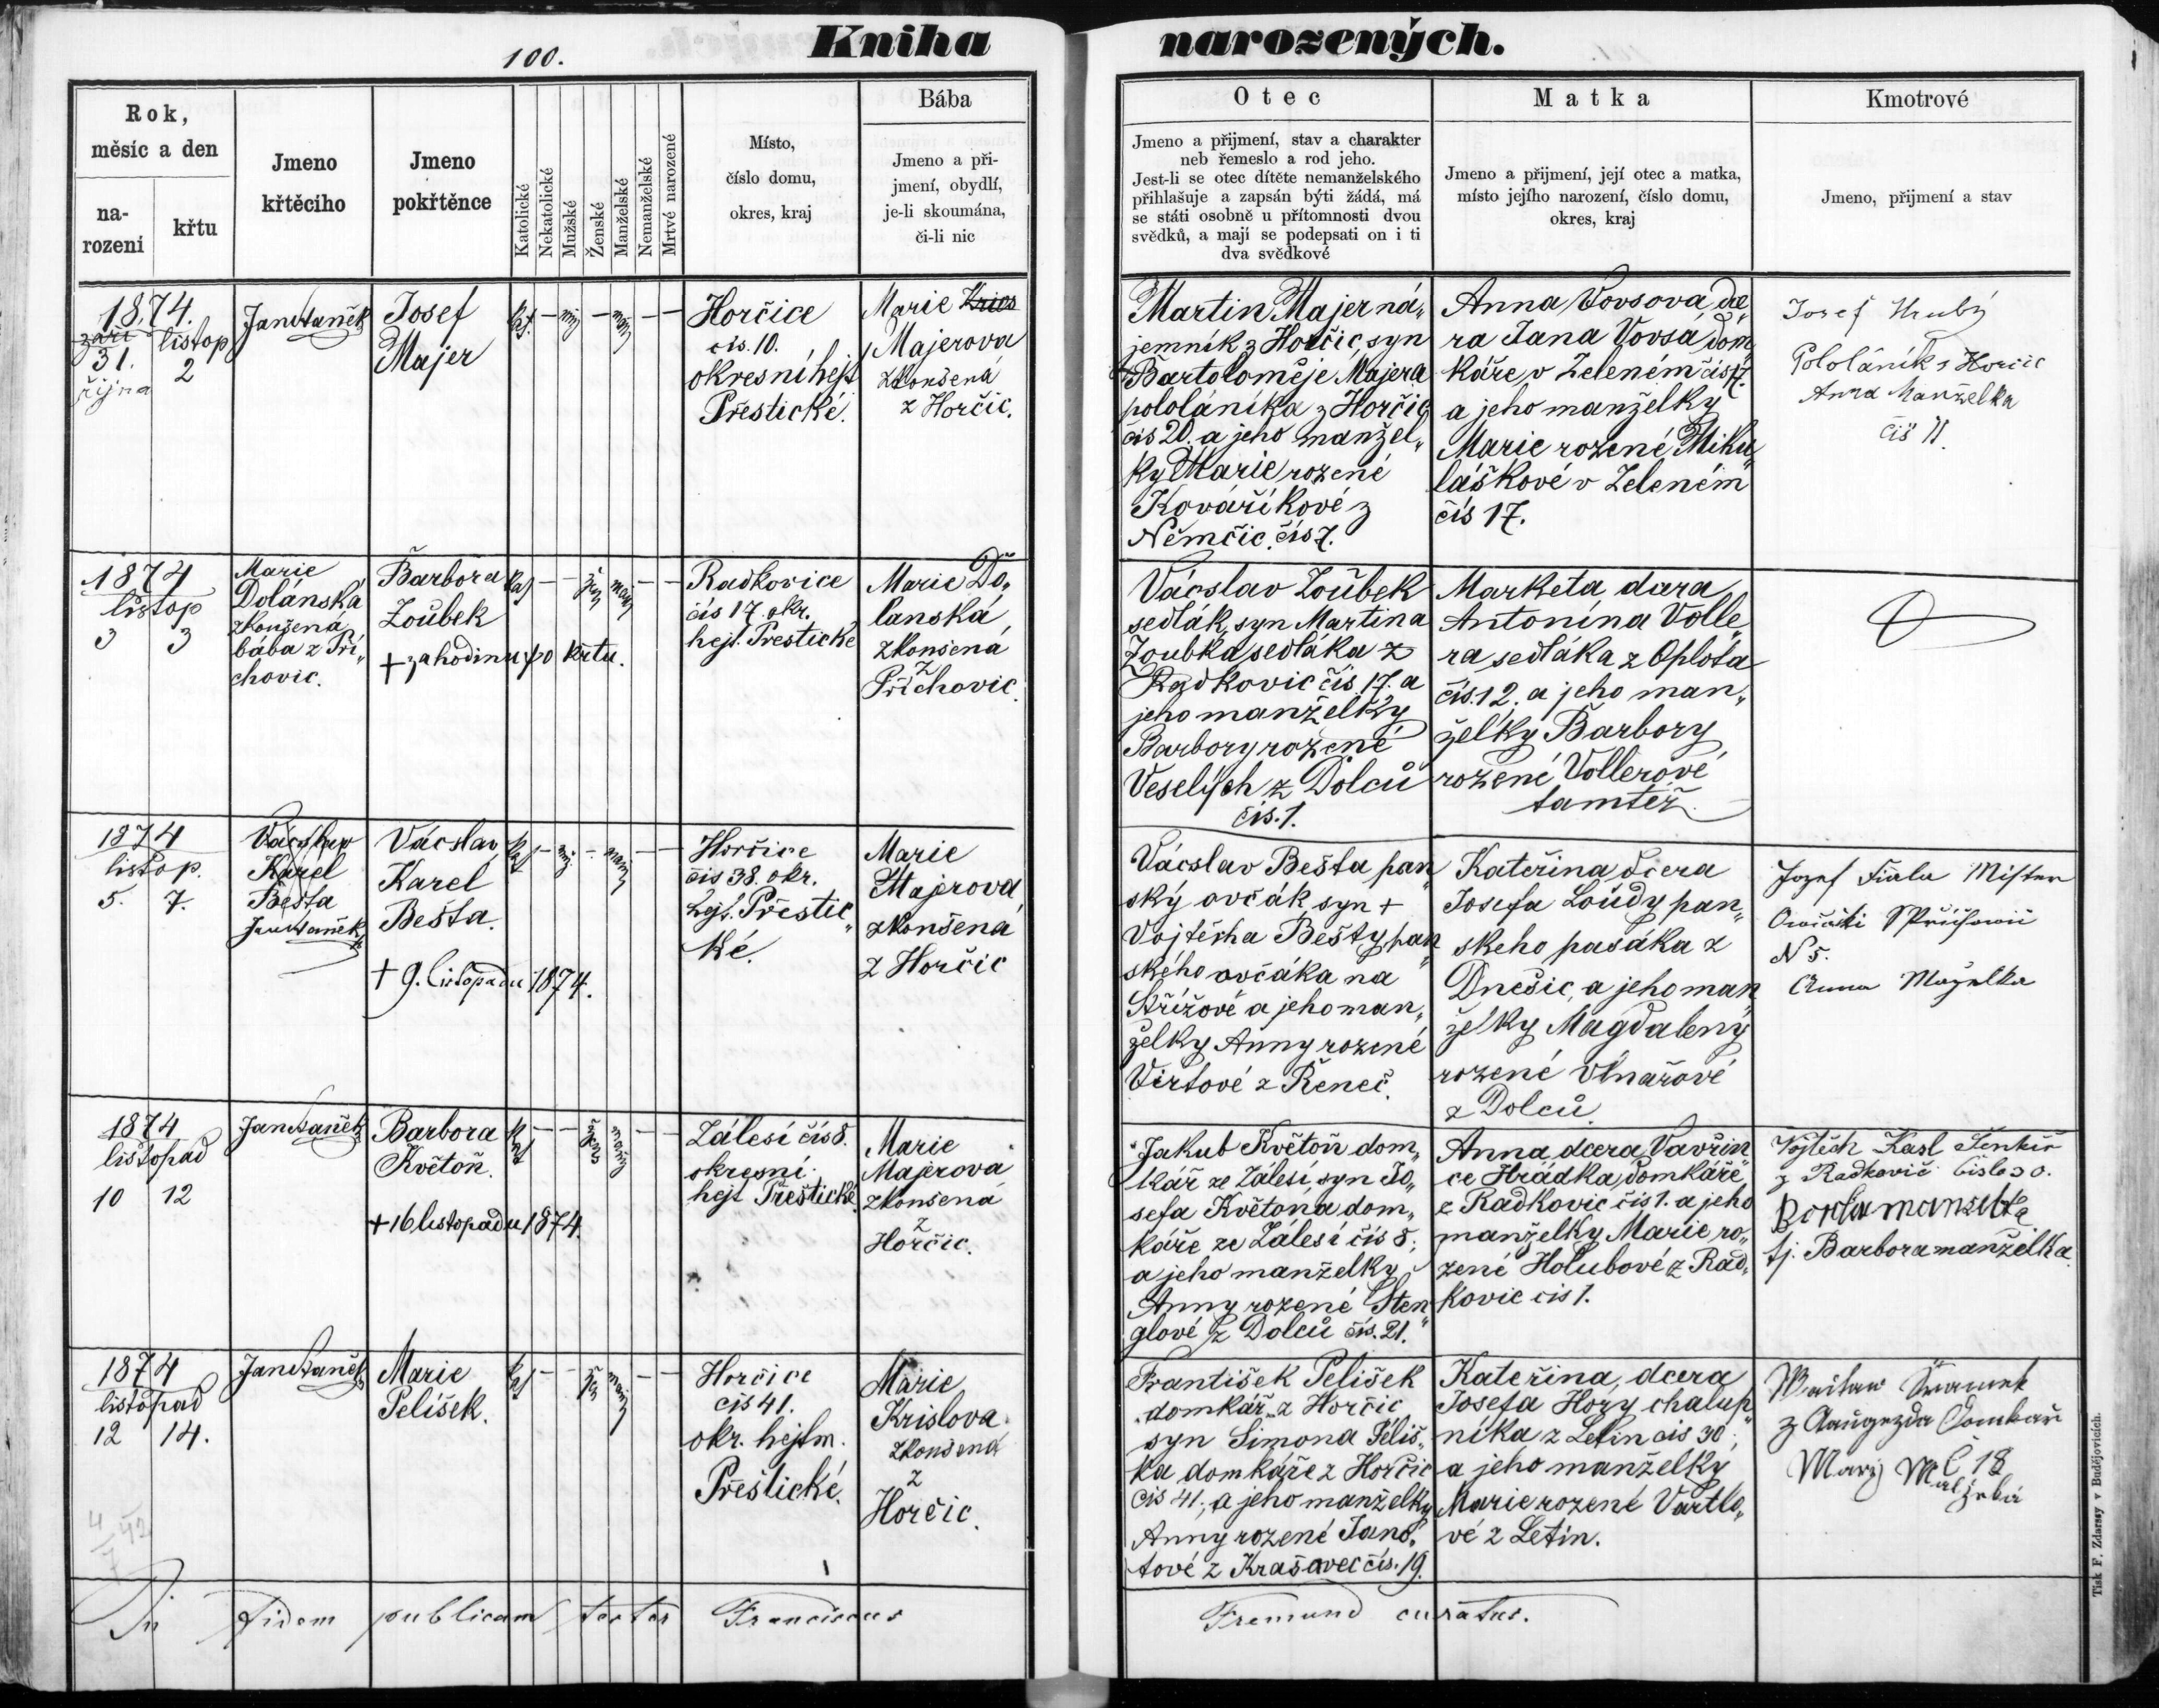 100.
Kniha narozených.
Rok,
měsíc a den
na-
rození
křtu
Jmeno
křtěcího
Jmeno
pokřtěnce
Katolické
Nekatolické
Mužské
Ženské
Manželské
Nemanželské
Mrtvé narozené
Místo,
číslo domu,
okres, kraj
Bába
Jmeno a při-
jmení, obydlí,
je-li skoumána,
či-li nic
Otec
Jmeno a přijmení, stav a charakter
neb řemeslo a rod jeho.
Jest-li se otec dítěte nemanželského
přihlašuje a zapsán býti žádá, má
se státi osobně u přítomnosti dvou
svědků, a mají se podepsati on i ti
dva svědkové
Matka
Jmeno a přijmení, její otec a matka,
místo jejího narození, číslo domu,
okres, kraj
Kmotrové
Jmeno, přijmení a stav
1874.
září listop
31. 2
října
Jan Vaněk
Josef
Majer
kat. — — —
Horčice
čís. 10.
okresní hejt
Přestické.
Marie Kries
Majerova
zkoušená
z Horčic.
Martin Majer ná„
jemník z Horčic, syn
Bartoloměje Majera
pololáníka z Horčic
čís 20. a jeho manžel„
ky Marie rozené
Kováříkové z
Němčic. čís 7.
Anna Vovsova, dce„
ra Jana Vovsa, dom
káře v Zeleném čís 17.
a jeho manželky
Marie rozené Miku„
láškové v Zeleném
čís 17.
Josef Hrubý
Pololáník z Horčic
Anna Manželka
čís 11.
1874
listop
3 3
Marie
Dolánská
zkoušená
bába z Pří„
chovic.
Barbora
Zoubek
+ za hodinu po křtu.
kat — — — —
Radkovice
čís 17. okr.
hejt. Prestické
Marie Do„
lanská,
zkoušená
z
Příchovic.
Vácslav Zoubek
sedlák, syn Martina
Zoubka sedláka z
Radkovic čís. 17. a
jeho manželky
Barbory rozené
Veselých z Dolců
čís. 1.
Marketa, dcera
Antonína Volle„
ra sedláka z Oplota
čís. 12. a jeho man„
želky Barbory
rozené Vollerové
tamtéž.
1874
listop.
5. 7.
Vácslav
Karel
Bešta
Jan Vaněk
Vácslav
Karel
Bešta.
+ 9. listopadu 1874.
kat — — — —
Horčice
čis 38. okr.
hejt. Přestic„
ké.
Marie
Majerova
zkoušená
z Horčic
Vácslav Bešta pan„
ský ovčák syn +
Vojtěcha Bešty pan„
ského ovčáka na
Střížově a jeho man„
želky Anny rozené
Virtové z Řeneč.
Kateřina, dcera
Josefa Loudy pan„
skeho pasáka z
Dnešic, a jeho man„
želky Magdaleny
rozené Vlnařové
z Dolců
Jozef Fiala Mister
N 5.
Anna
1874
listopad
10 12
Jan Vaněk
Barbora
Květoň.
+ 16 listopadu 1874.
kat — — — —
Zálesí čís 8.
okresní
hejt Přeštické.
Marie
Majerova
zkoušená
z
Horčic.
Jakub Květoň dom„
kář ze Zálesí, syn Jo„
sefa Květoňa dom„
káře ze Zálesí čís 8.,
a jeho manželky
Anny rozené Sten„
glové z Dolců čís. 21.
Anna dcera Vavřin
ce Hrádka, domkáře,
z Radkovic čís 1. a jeho
manželky Marie ro„
zené Holubové z Rad„
kovic cis 1.
Vojtěch Kasl
z Radkovic číslo 30.
manzelka
tj. Barbora manželka.
1874
listopad
12 14.
Jan Vaněk
Marie
Pelíšek.
kat — — — —
Horčice
čís 41.
okr. hejtm.
Přeštické.
Marie
Krislova
zkoušená
z
Horčic.
František Pelišek
domkář z Horčic
syn Šimona Peliš„
ka domkáře z Horčic
čís 41., a jeho manželky
Anny rozené Janó„
tové z Krašovec čís. 19.
Kateřina, dcera
Josefa Hory chalup„
níka z Letin čís 30.,
a jeho manželky
Marie rozené Vartlo„
vé z Letin.
č 18
In fidem publicam testor Franciscus
Fremund curatus.
Tisk F. Zdarssy v Budějovicích.